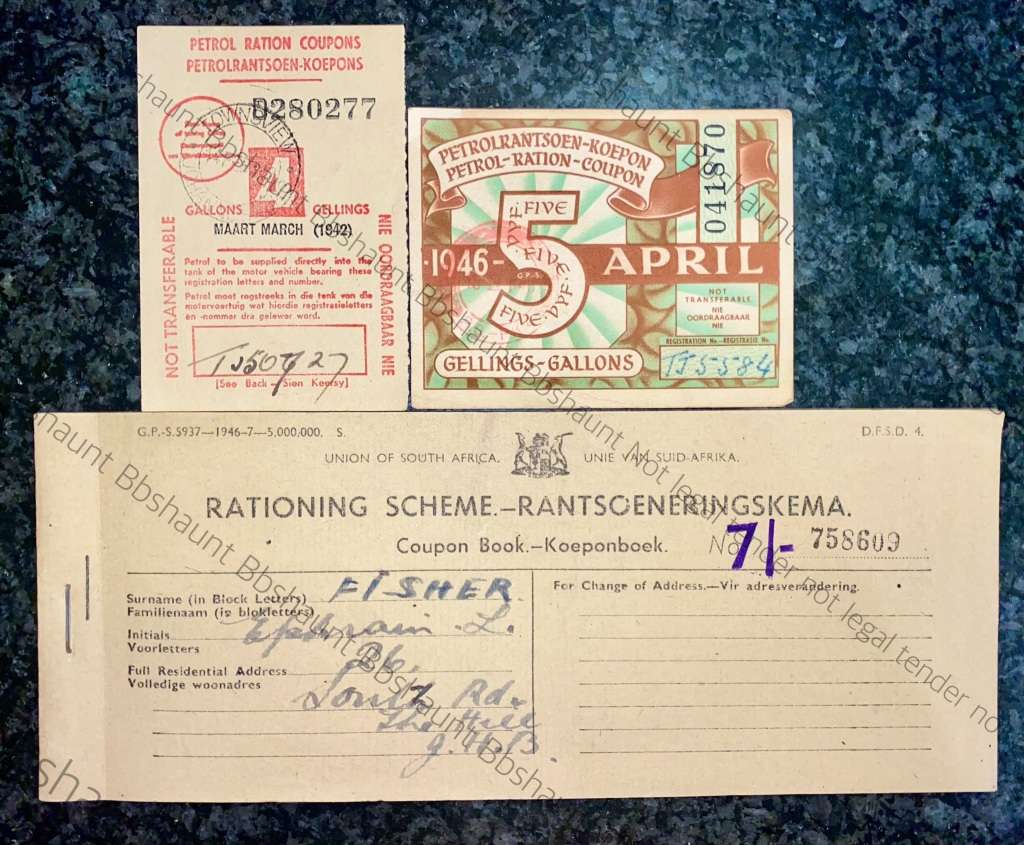 PETROL RATION COUPONS
PETROLRANTSOEN-KOEPONS
B280277
4
GALLONS GELLINGS
MAART MARCH (1942)
NOT TRANSFERABLE
NIE OORDRAAGBAAR NIE
Petrol to be supplied directly into the
tank of the motor vehicle bearing these
registration letters and number.
Petrol moet regstreeks in die tenk van die
motorvoertuig wat hierdie registrasieletters
en -nommer dra gelewer word.
TJ50727
[See Back - Sien Keersy]
PETROLRANTSOEN-KOEPON
PETROL-RATION-COUPON
041870
5
FIVE
VYF
FIVE
VYF
FIVE
·1946-
APRIL
G.P.-S.
NOT
TRANSFERABLE
NIE
OORDRAAGBAAR
NIE
REGISTRATION No.-REGISTRASIE No.
TJ5584
GELLINGS-GALLONS
G.P.-S.5937—1946-7—5,000,000. S.
D.F.S.D. 4.
UNION OF SOUTH AFRICA. UNIE VAN SUID-AFRIKA.
RATIONING SCHEME.–RANTSOENERINGSKEMA.
Coupon Book.–Koeponboek.
No. 758609
7/-
Surname (in Block Letters) FISHER
Familienaam (in blokletters)
Initials Ephraim L.
Voorletters
Full Residential Address 26.
Volledige woonadres South Rd.
The Hill
For Change of Address.—Vir adresverandering.
Bbshaunt Bbshaunt Bbshaunt Not legal tender not legal tender not